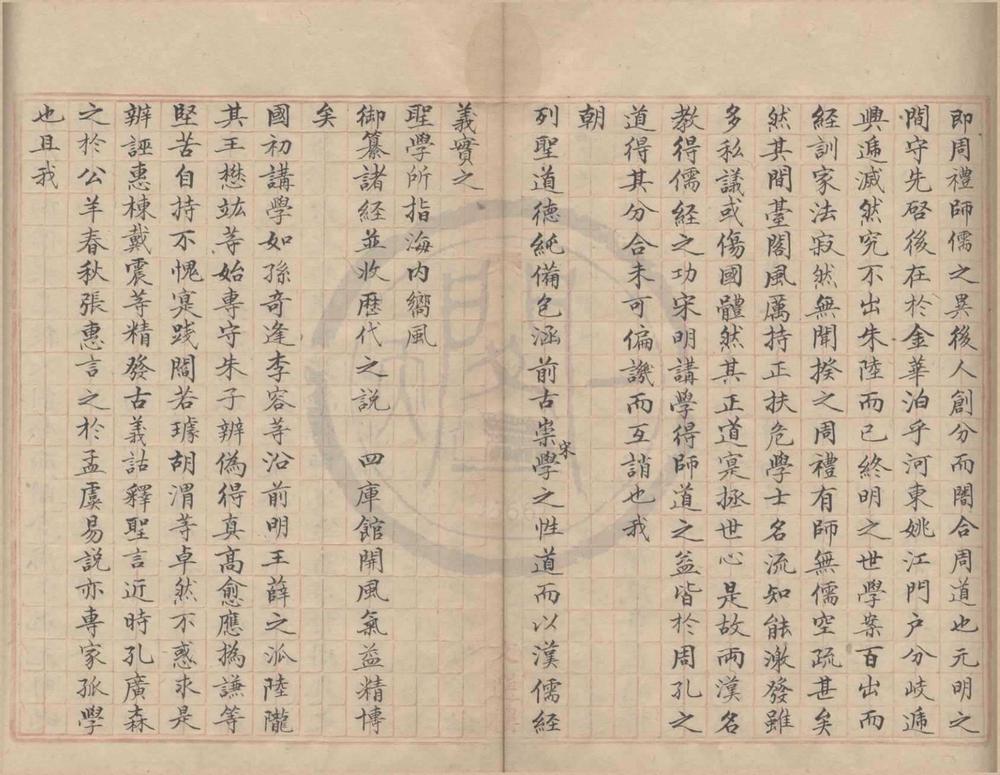 即周禮師儒之異後人創分而闇合周道也元明之
間守先啓後在於金華洎乎河東姚江門户分岐遞
興遞滅然究不出朱陸而已終明之世學案百出而
經訓家法寂然無聞揆之周禮有師無儒空疏甚矣
然其間臺閣風厲持正扶危學士名流知能激發雖
多私議或傷國體然其正道寔拯世心是故兩漢名
教得儒經之功宋明講學得師道之益皆於周孔之
道得其分合未可偏譏而互誚也我
朝
列聖道德純備包涵前古崇宋學之性道而以漢儒經
義實之
聖學所指海内嚮風
御纂諸經並收歷代之説四庫館開風氣益精博
矣
國初講學如孫奇逢李容等沿前明王薛之派陸隴
其王懋竑等始專守朱子辨偽得真高愈應撝謙等
堅苦自持不愧寔踐閻若璩胡渭等卓然不惑求是
辨誣惠棟戴震等精發古義詁釋聖言近時孔廣森
之於公羊春秋張惠言之於孟虞易説亦專家孤學
也且我